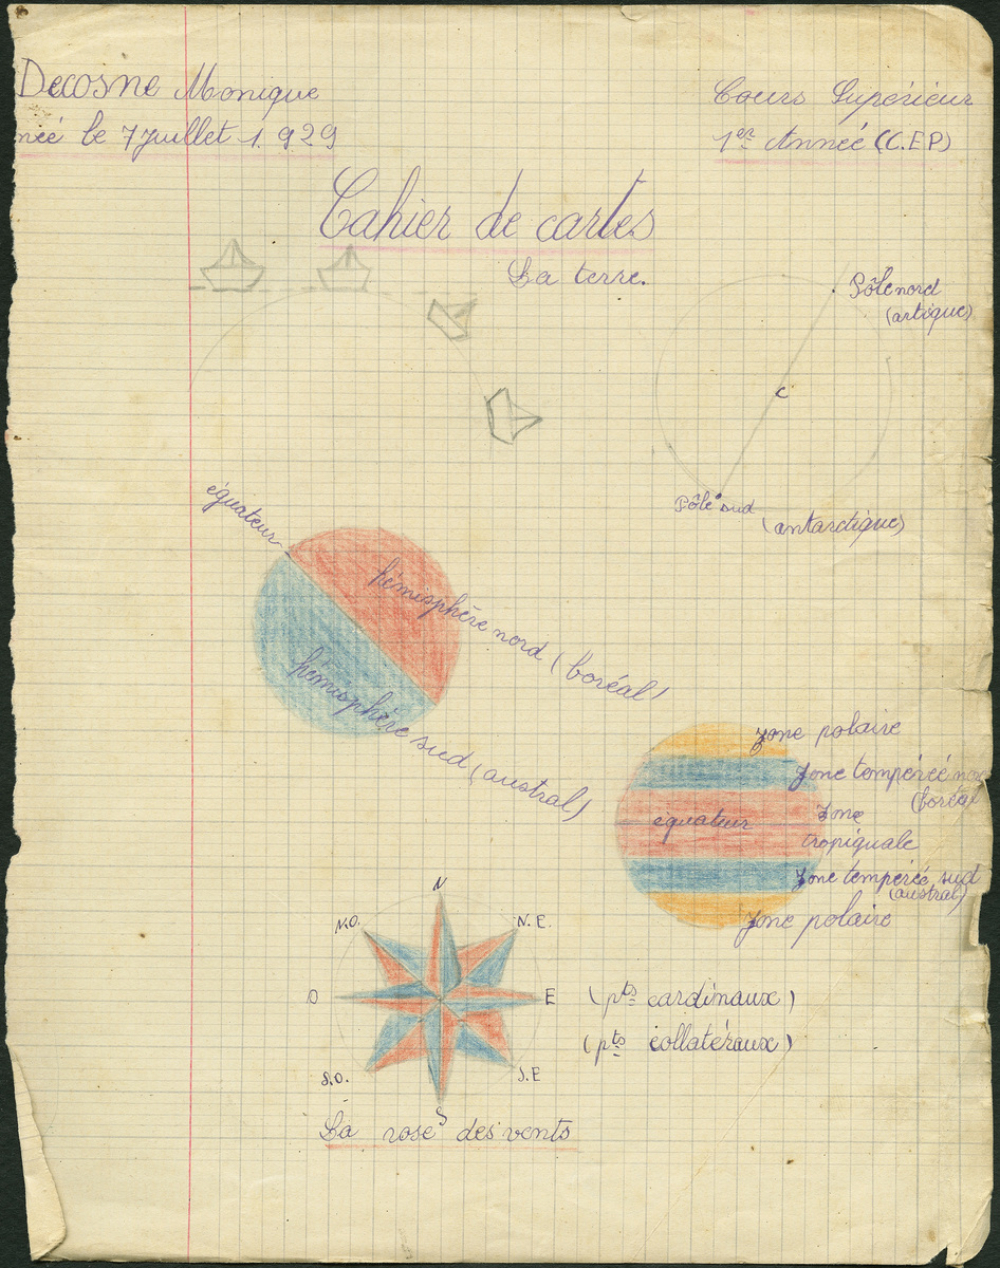 Decosne Monique
née le 7 Juillet 1929
Cours Supérieur
1er Année (C.E.P)
Cahier de cartes
La terre.
Pôle nord
(artique)
C
Pôle sud
(antarctique)
équateur
hémisphère nord (boréal)
hémisphère sud (austral)
zone polaire
zone tempérée no
(boréa
équateur
zone
tropiquale
zone tempérée sud
(austral)
zone polaire
N
N.O.
N.E.
O
E
(pts cardinaux)
(pts collatéraux)
S.O.
S.E
S
La rose des vents